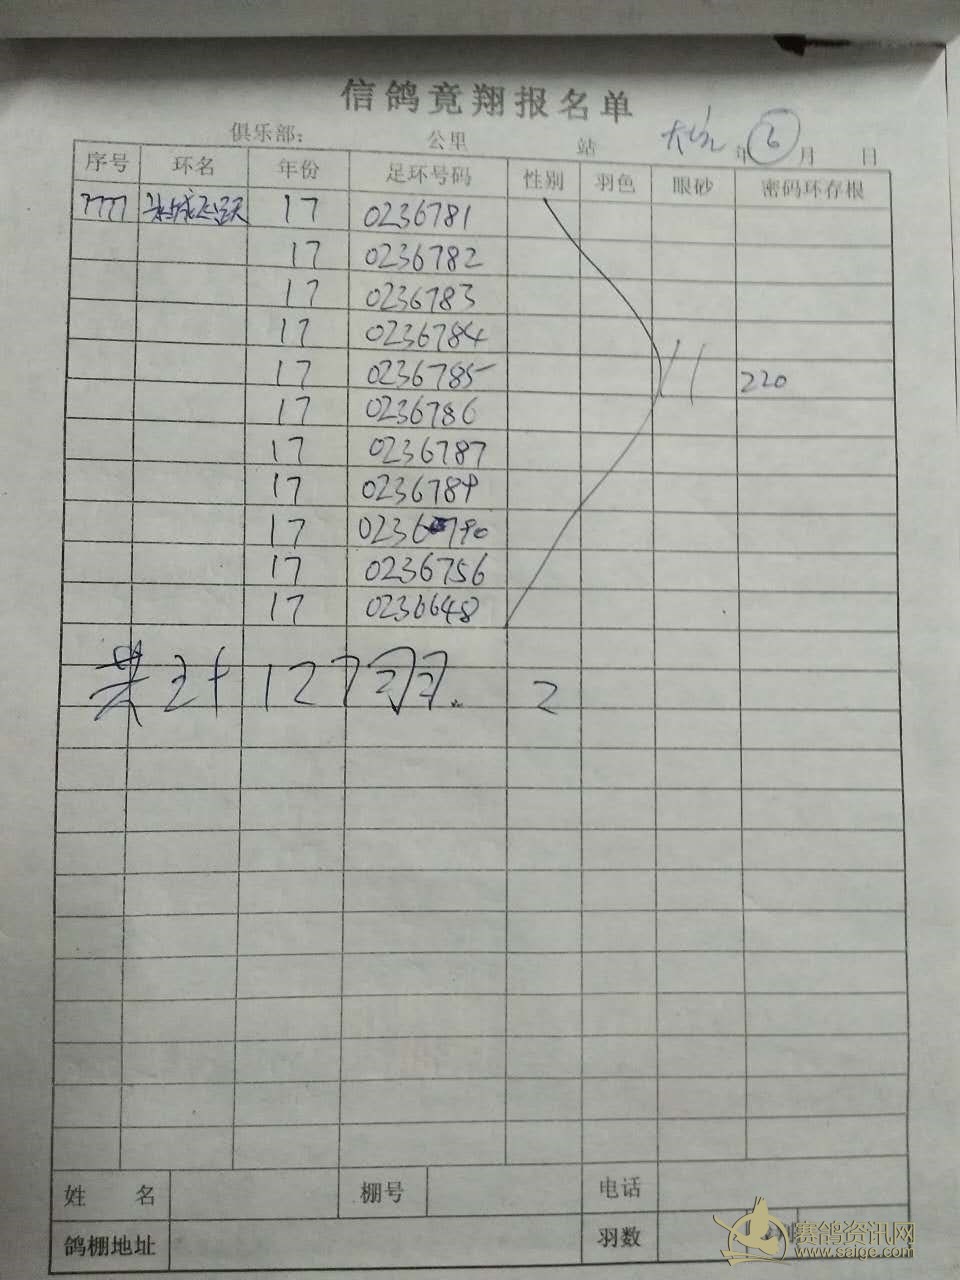 信鸽竟翔报名单
俱乐部: 公里 站 年 6 月 日
序号 环名 年份 足环号码 性别 羽色 眼砂 密码环存根
7777 17 0236781
17 0236782
17 0236783
17 0236784
17 0236785 11 220
17 0236786
17 0236787
17 0236789
17 0236790
17 0236756
17 0236648
共计127羽. 2
姓 名 棚号 电话
鸽棚地址 羽数
赛鸽资讯网
www.saige.com